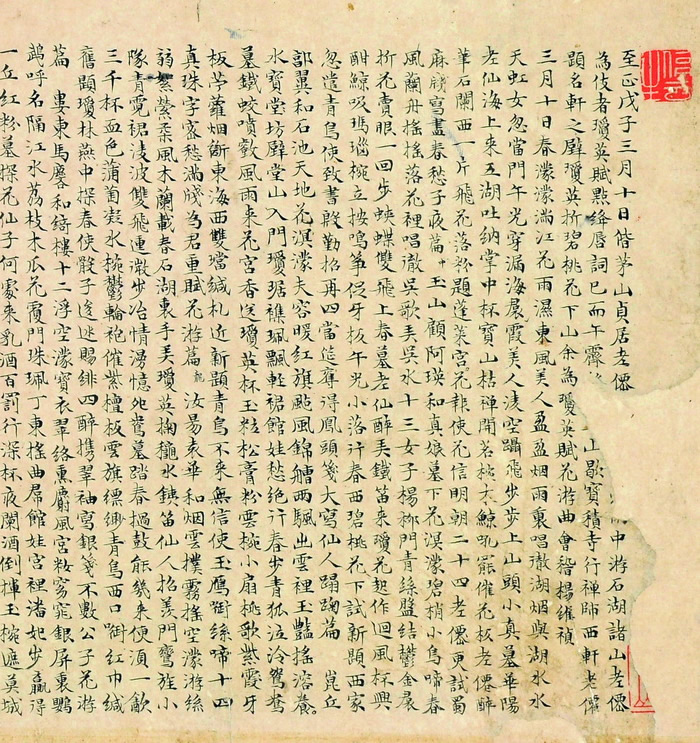 至正戊子三月十日偕茅山貞居老僊中游石湖諸山老僊
為伎者瓊英賦點絳唇詞已而午霽山歇寶積寺行禪師西軒老僊
題名軒之壁瓊英折碧桃花下山余為瓊英賦花游曲會稽楊維楨
三月十日春濛濛滿江花雨濕東風美人盈盈烟雨裏唱徹湖烟與湖水水
天虹女忽當門午光穿漏海霞美人淩空躡飛步步上山頭小真墓華陽
老仙海上来五湖吐納掌中杯寶山枯禪開茗椀木鯨吼罷催花板老僊醉
筆石闌西一片飛花落粉題蓬萊宮花報使花信明朝二十四老僊更試蜀
麻牋寫盡春愁子夜篇 玉山顧阿瑛和真娘墓下花溟濛碧梢小鳥啼春
風蘭舟搖搖落花裡唱徹吳歌美吳水十三女子楊柳門青絲盤結鬱金
折花賣眼一回步蛺蝶雙飛上春墓老仙醉美鐵笛来瓊花起作迴風杯興
酣鯨吸瑪瑙椀立按鳴箏促牙板午光小落行春西碧桃花下試新題西家
忽遣青鳥使致書殷勤招再四當筵奪得鳳頭箋大寫仙人蹋踘篇 崑丘
部翼和石池天地花溟濛夫容暖紅旗颭風錦艚西飄出雲裡玉艷搖溶養
水寶堂坊壁堂山入門瓊琚襍珮飄輕裾館娃愁絕行春步青狐泣冷鴛鴦
墓鐵蛟噴歎風雨来花宮香送瓊英杯玉粒松膏粉雲椀小扇桃歌紫霞牙
板苧蘿烟斷東海西雙璫緘札近新題青鳥不来無信使玉鴈銜絲啼十四
真珠字密愁滿牋為君重賦花游篇 汝易袁華和烟雲霧搖空濛游絲
弱縈縈柔風木蘭載春石湖裏手美瓊英掬龍水鐵笛仙人招羨門鸞旌小
隊青霓裙淩波雙飛連微步冶情湧憶鴦墓踏春撾鼓能幾来便須一飲
三千杯血色蒲萄水椀鬱輪袍催紫檀板雲旗縹緲青鳥西口啣紅巾緘
舊題瓊林燕中探春使骰子逡巡賜緋四醉携翠袖寫銀箋不數公子花游
篇 婁東馬麐和綺樓十二浮空濛寶衣翠絡熏麝風宮粧窈窕銀屏裏鸚
鵡呼名隔江水荔枝木瓜花霞門珠珮丁東搖曲館娃宮裡潘妃步贏得
一丘紅粉墓探花仙子何處来乳酒百罰行深杯夜闌酒倒揮玉椀譙莫城